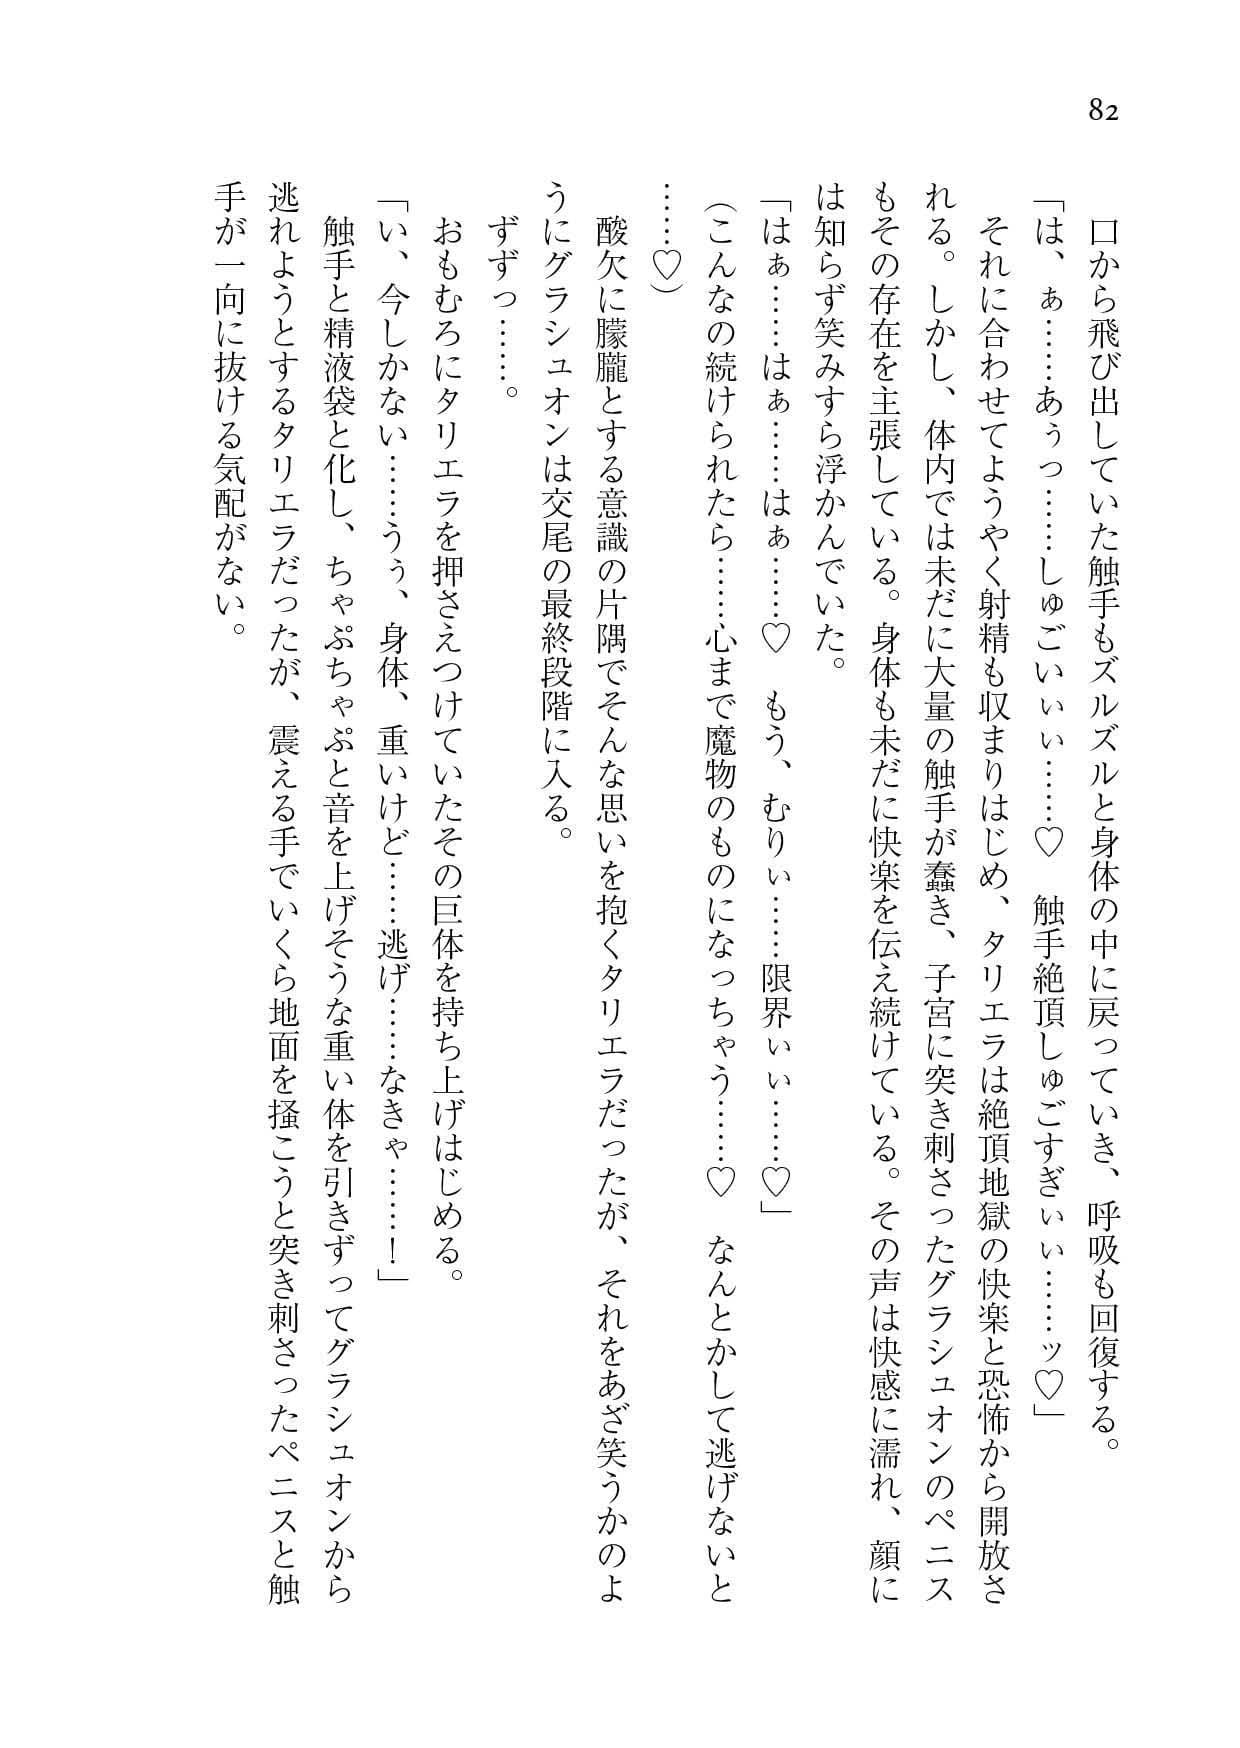 82
　口から飛び出していた触手もズルズルと身体の中に戻っていき、呼吸も回復する。
「は、ぁ……あぅっ……しゅごいぃぃ……♡　触手絶頂しゅごすぎぃぃ……ッ♡」
　それに合わせてようやく射精も収まりはじめ、タリエラは絶頂地獄の快楽と恐怖から開放さ
れる。しかし、体内では未だに大量の触手が蠢き、子宮に突き刺さったグラシュオンのペニス
もその存在を主張している。身体も未だに快楽を伝え続けている。その声は快感に濡れ、顔に
は知らず笑みすら浮かんでいた。
「はぁ……はぁ……はぁ……♡　もう、むりぃ……限界ぃぃ……♡」
（こんなの続けられたら……心まで魔物のものになっちゃう……♡　なんとかして逃げないと
……♡）
　酸欠に朦朧とする意識の片隅でそんな思いを抱くタリエラだったが、それをあざ笑うかのよ
うにグラシュオンは交尾の最終段階に入る。
　ずずっ……。
　おもむろにタリエラを押さえつけていたその巨体を持ち上げはじめる。
「い、今しかない……うぅ、身体、重いけど……逃げ……なきゃ……！」
　触手と精液袋と化し、ちゃぷちゃぷと音を上げそうな重い体を引きずってグラシュオンから
逃れようとするタリエラだったが、震える手でいくら地面を掻こうと突き刺さったペニスと触
手が一向に抜ける気配がない。